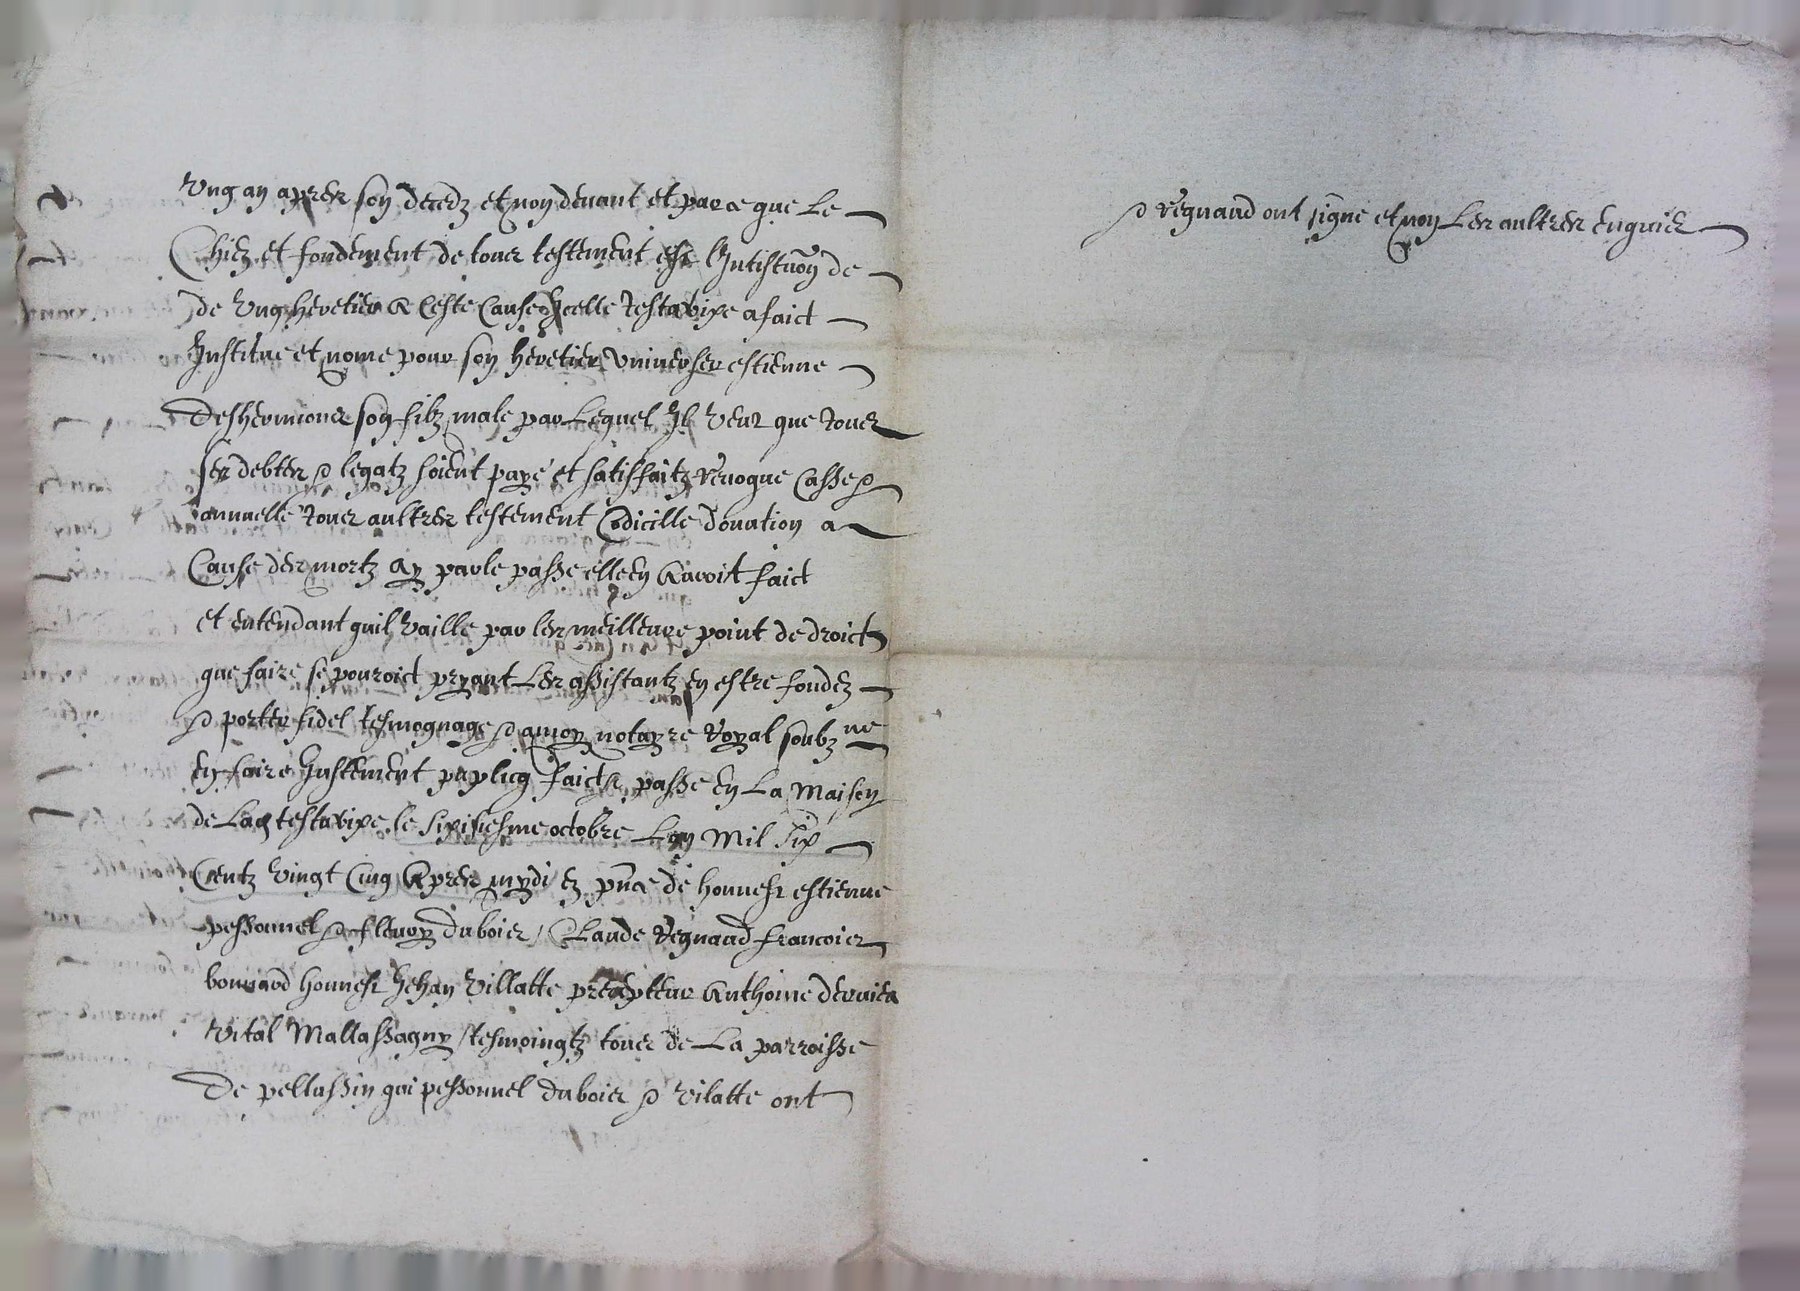 Ung an apres son decedz et non devant et parce que le
Chiez et fondement de tous testement est Lintistuon de
de Ung heretier A Ceste Cause Icelle Testatrixe a faict
Institue et nome pour son heretier Universer estienne
Deshermones son filz male par Lequel Il Veut que Tous
ses debtes & legatz soient paye et satisfaitz Revoque Casse &
annuelle Tous aultres testement Codicille donation a
Cause des mortz Ay par le passe elle en Auroit faict
et entendant quil Vaille par les meilleure point de droict
que faire se pouroict pryant Les assistantz en estre fondez
& porter fidel tesmognage & a moy notayre Royal soubz ne
en faire Instement puplicq faict & passe en La Maison
de Lad testatrixe le sixisiesme octobre Lan Mil Six
Centz Vingt Cinq Apres mydi ez pnce de honnest estienne
pessonnel & fleury dubois / Claude Regnaud francois
bonnard honnest Jehan Villatte precepteur Anthoine
Vital Mallassagny tesmoingtz tous de La parroisse
De pellussin qui pessonnel dubois & Vilatte ont
& Regnaud ont signe et non Les aultres enquis